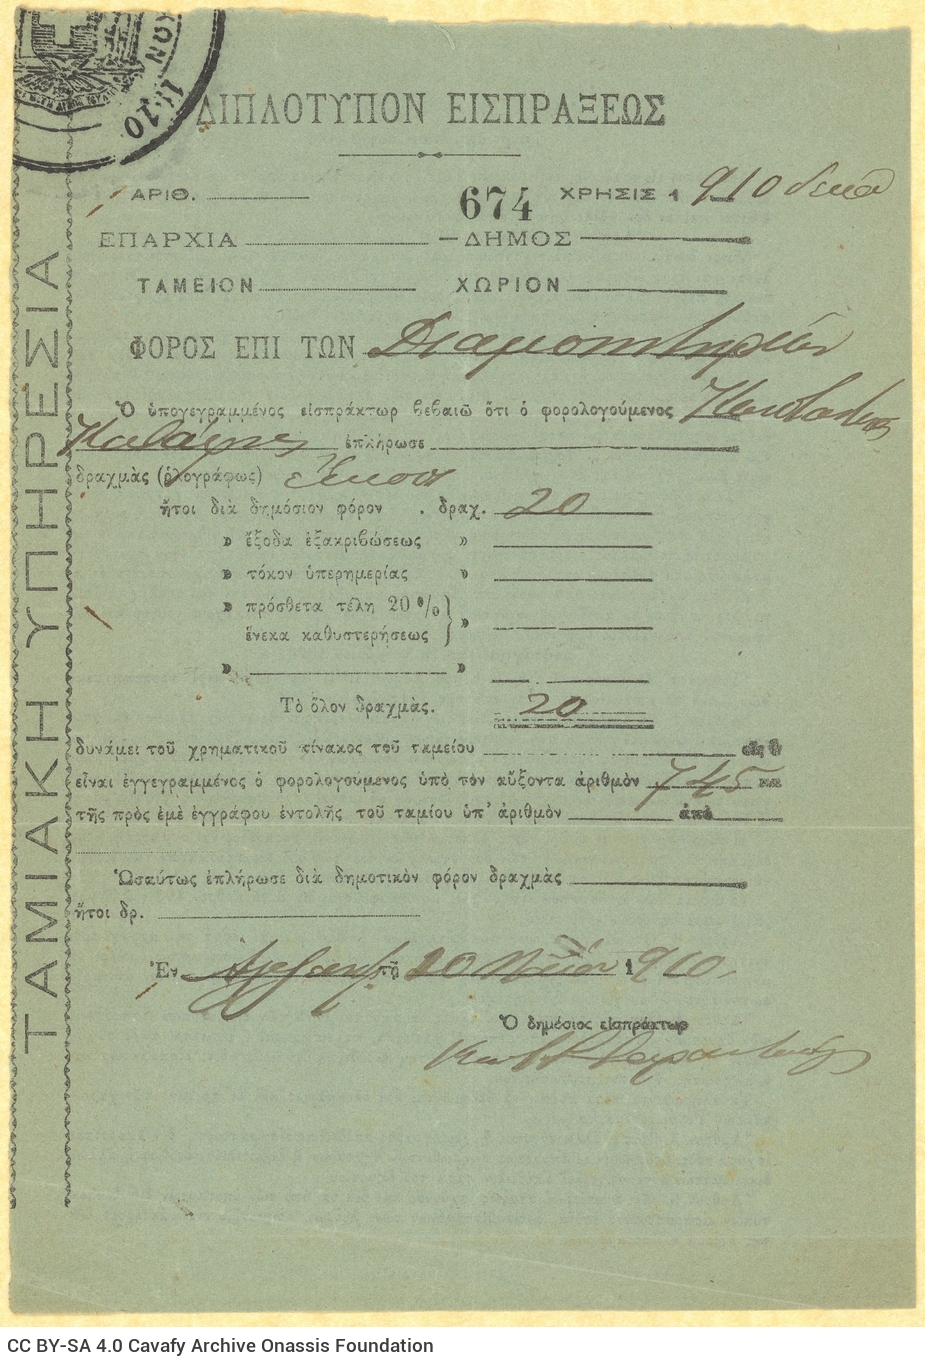 ΤΑΜΙΑΚΗ ΥΠΗΡΕΣΙΑ
ΔΙΠΛΟΤΥΠΟΝ ΕΙΣΠΡΑΞΕΩΣ
ΑΡΙΘ. 674 ΧΡΗΣΙΣ 1910
ΕΠΑΡΧΙΑ ΔΗΜΟΣ
ΤΑΜΕΙΟΝ ΧΩΡΙΟΝ
ΦΟΡΟΣ ΕΠΙ ΤΩΝ Διαμονητηρίων
Ὁ ὑπογεγραμμένος εἰσπράκτωρ βεβαιῶ ὅτι ὁ φορολογούμενος Κωνσταντῖνος
Καβάφης ἐπλήρωσε
δραχμὰς (ὁλογράφως) εἴκοσι
ἤτοι διὰ δημόσιον φόρον . δραχ. 20
» ἔξοδα ἐξακριβώσεως »
» τόκον ὑπερημερίας »
» πρόσθετα τέλη 20 % »
ἕνεκα καθυστερήσεως
» »
Τὸ ὅλον δραχμὰς. 20
δυνάμει τοῦ χρηματικοῦ πίνακος τοῦ ταμείου
εἶναι ἐγγεγραμμένος ὁ φορολογούμενος ὑπὸ τὸν αὔξοντα ἀριθμὸν 745
τῆς πρὸς ἐμὲ ἐγγράφου ἐντολῆς τοῦ ταμίου ὑπ' ἀριθμὸν ἀπὸ
Ὡσαύτως ἐπλήρωσε διὰ δημοτικὸν φόρον δραχμὰς
ἤτοι δρ.
Ἐν Ἀλεξανδρ. τῇ 20 1910
Ὁ δημόσιος εἰσπράκτωρ
CC BY-SA 4.0 Cavafy Archive Onassis Foundation